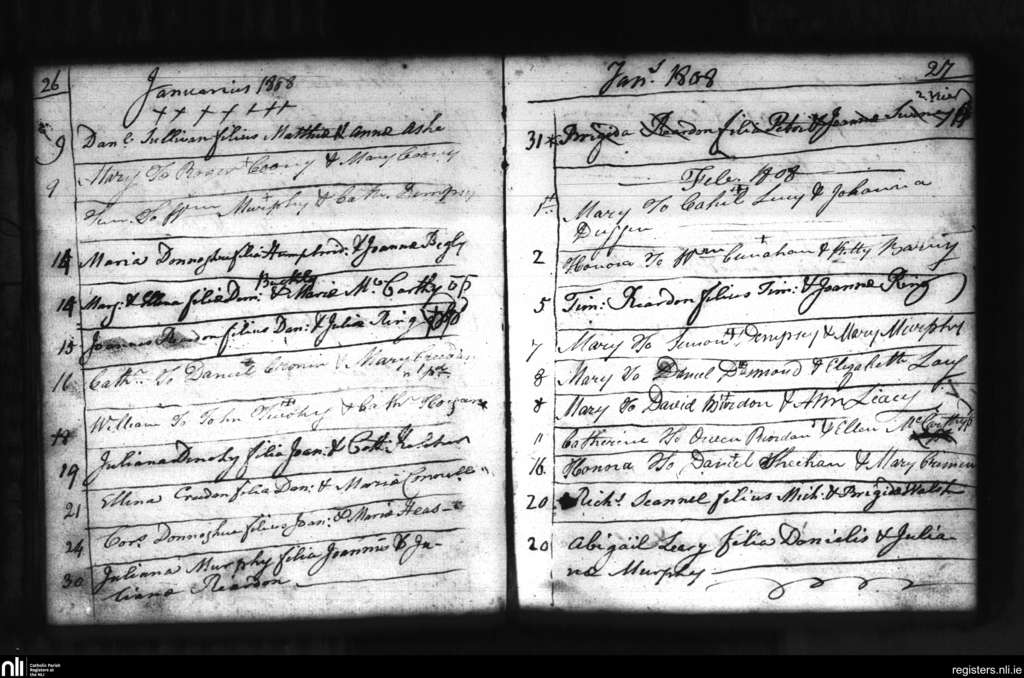 26
Januarius 1808
9 Danl. Sullivan filius Matthei & Anne Ashe
9 Mary To Roger Coony & Mary Coony
Tim. To Wm Murphy & Cath. Dempsy
14 Maria Donnoghue filia Humphrid: & Joanna Begly
Buckly
14 Marg: & Ellena filiæ Dan: & Mariæ McCarthy
15 Joannes Reardon filius Dan: & Julia Ring
16 Cathn. To Daniel Cronin & Mary
18 William To John & Cathn. Hogan
19 Juliana filia Joan: & Cath:
21 Ellena Creedon filia Dan: & Maria Connell
24 Cors. Donnoghue filius Joan: & Maria
30 Juliana Murphy filia Joannis & Ju-
liana Reardon
27
Jans. 1808
31 Brigida Reardon filia Petri & Joanna
Feb. 1808
1st Mary To Cahil Lucy & Johanna
Duggan
2 Honora To Wm & Kitty
5 Tim: Reardon filius Tim: & Joanne Ring
7 Mary To Dempsy & Mary Murphy
8 Mary To Daniel Desmond & Elizabeth
8 Mary To David & Ann Leacy
11 Catherine To Owen Riordan & Ellen McCarthy
16 Honora To Daniel Sheehan & Mary
20 Richs. Scannel filius Mich: & Brigida Walsh
20 Abigail Leary filia Danielis & Julia-
na Murphy
nli
Catholic Parish
Registers at
the NLI
registers.nli.ie